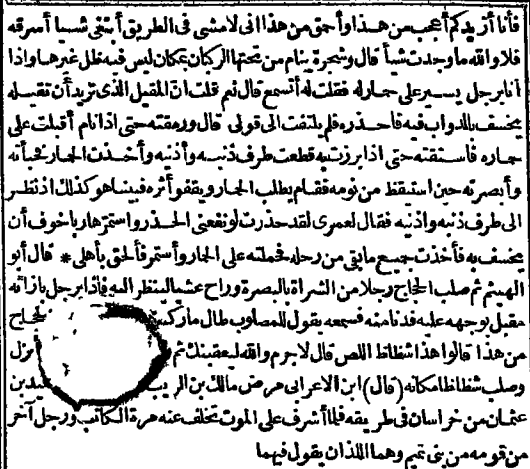 فأنا أزيدكم أعجب من هذا وأحمق من هذا انى لامشى فى الطريق أبتغى شيأ أسرقه
فلا والله ما وجدت شيأ قال وشجرة ينام من تحتها الركبان بمكان ليس فيه ظل غيرها واذا
أنا برجل يسير على حمار له فقلت له أتسمع قال نعم قلت ان المقيل الذى تريد أن تقيله
يخسف بالدواب فيه فاحذره فلم يلتفت الى قولى قال ورمقته حتى اذا نام أقبلت على
حماره فاستقته حتى اذا برزت به قطعت طرف ذنبه وأذنيه وأخذت الحمار فخبأته
وأبصرته حين استيقظ من نومه فقام يطلب الحمار ويقفو أثره فبينا هو كذلك اذ نظر
الى طرف ذنبه واذنيه فقال لعمرى لقد حذرت لو نفعنى الحذر واستمر هاربا خوف أن
يخسف به فأخذت جميع ما بقى من رحله فحملته على الحمار وأستمر فألحق بأهلى * قال أبو
الهيثم ثم صلب الحجاج رجلا من الشراة بالبصرة وراح عشيا لينظر اليه فاذا برجل بازائه
مقبل بوجهه عليه فدنا منه فسمعه يقول للمصلوب طال ما ركبت الحجاج
من هذا قالوا هذا شظاظ اللص قال لا جرم والله ليعقبنك ثم أنزل
وصلب شظاظا مكانه (قال) ابن الاعرابى مرض مالك بن الريب
عثمان من خراسان فى طريقه فلما أشرف على الموت تخلف عنه مرة الكاتب ورجل آخر
من قومه من بنى تميم وهما اللذان يقول فيهما